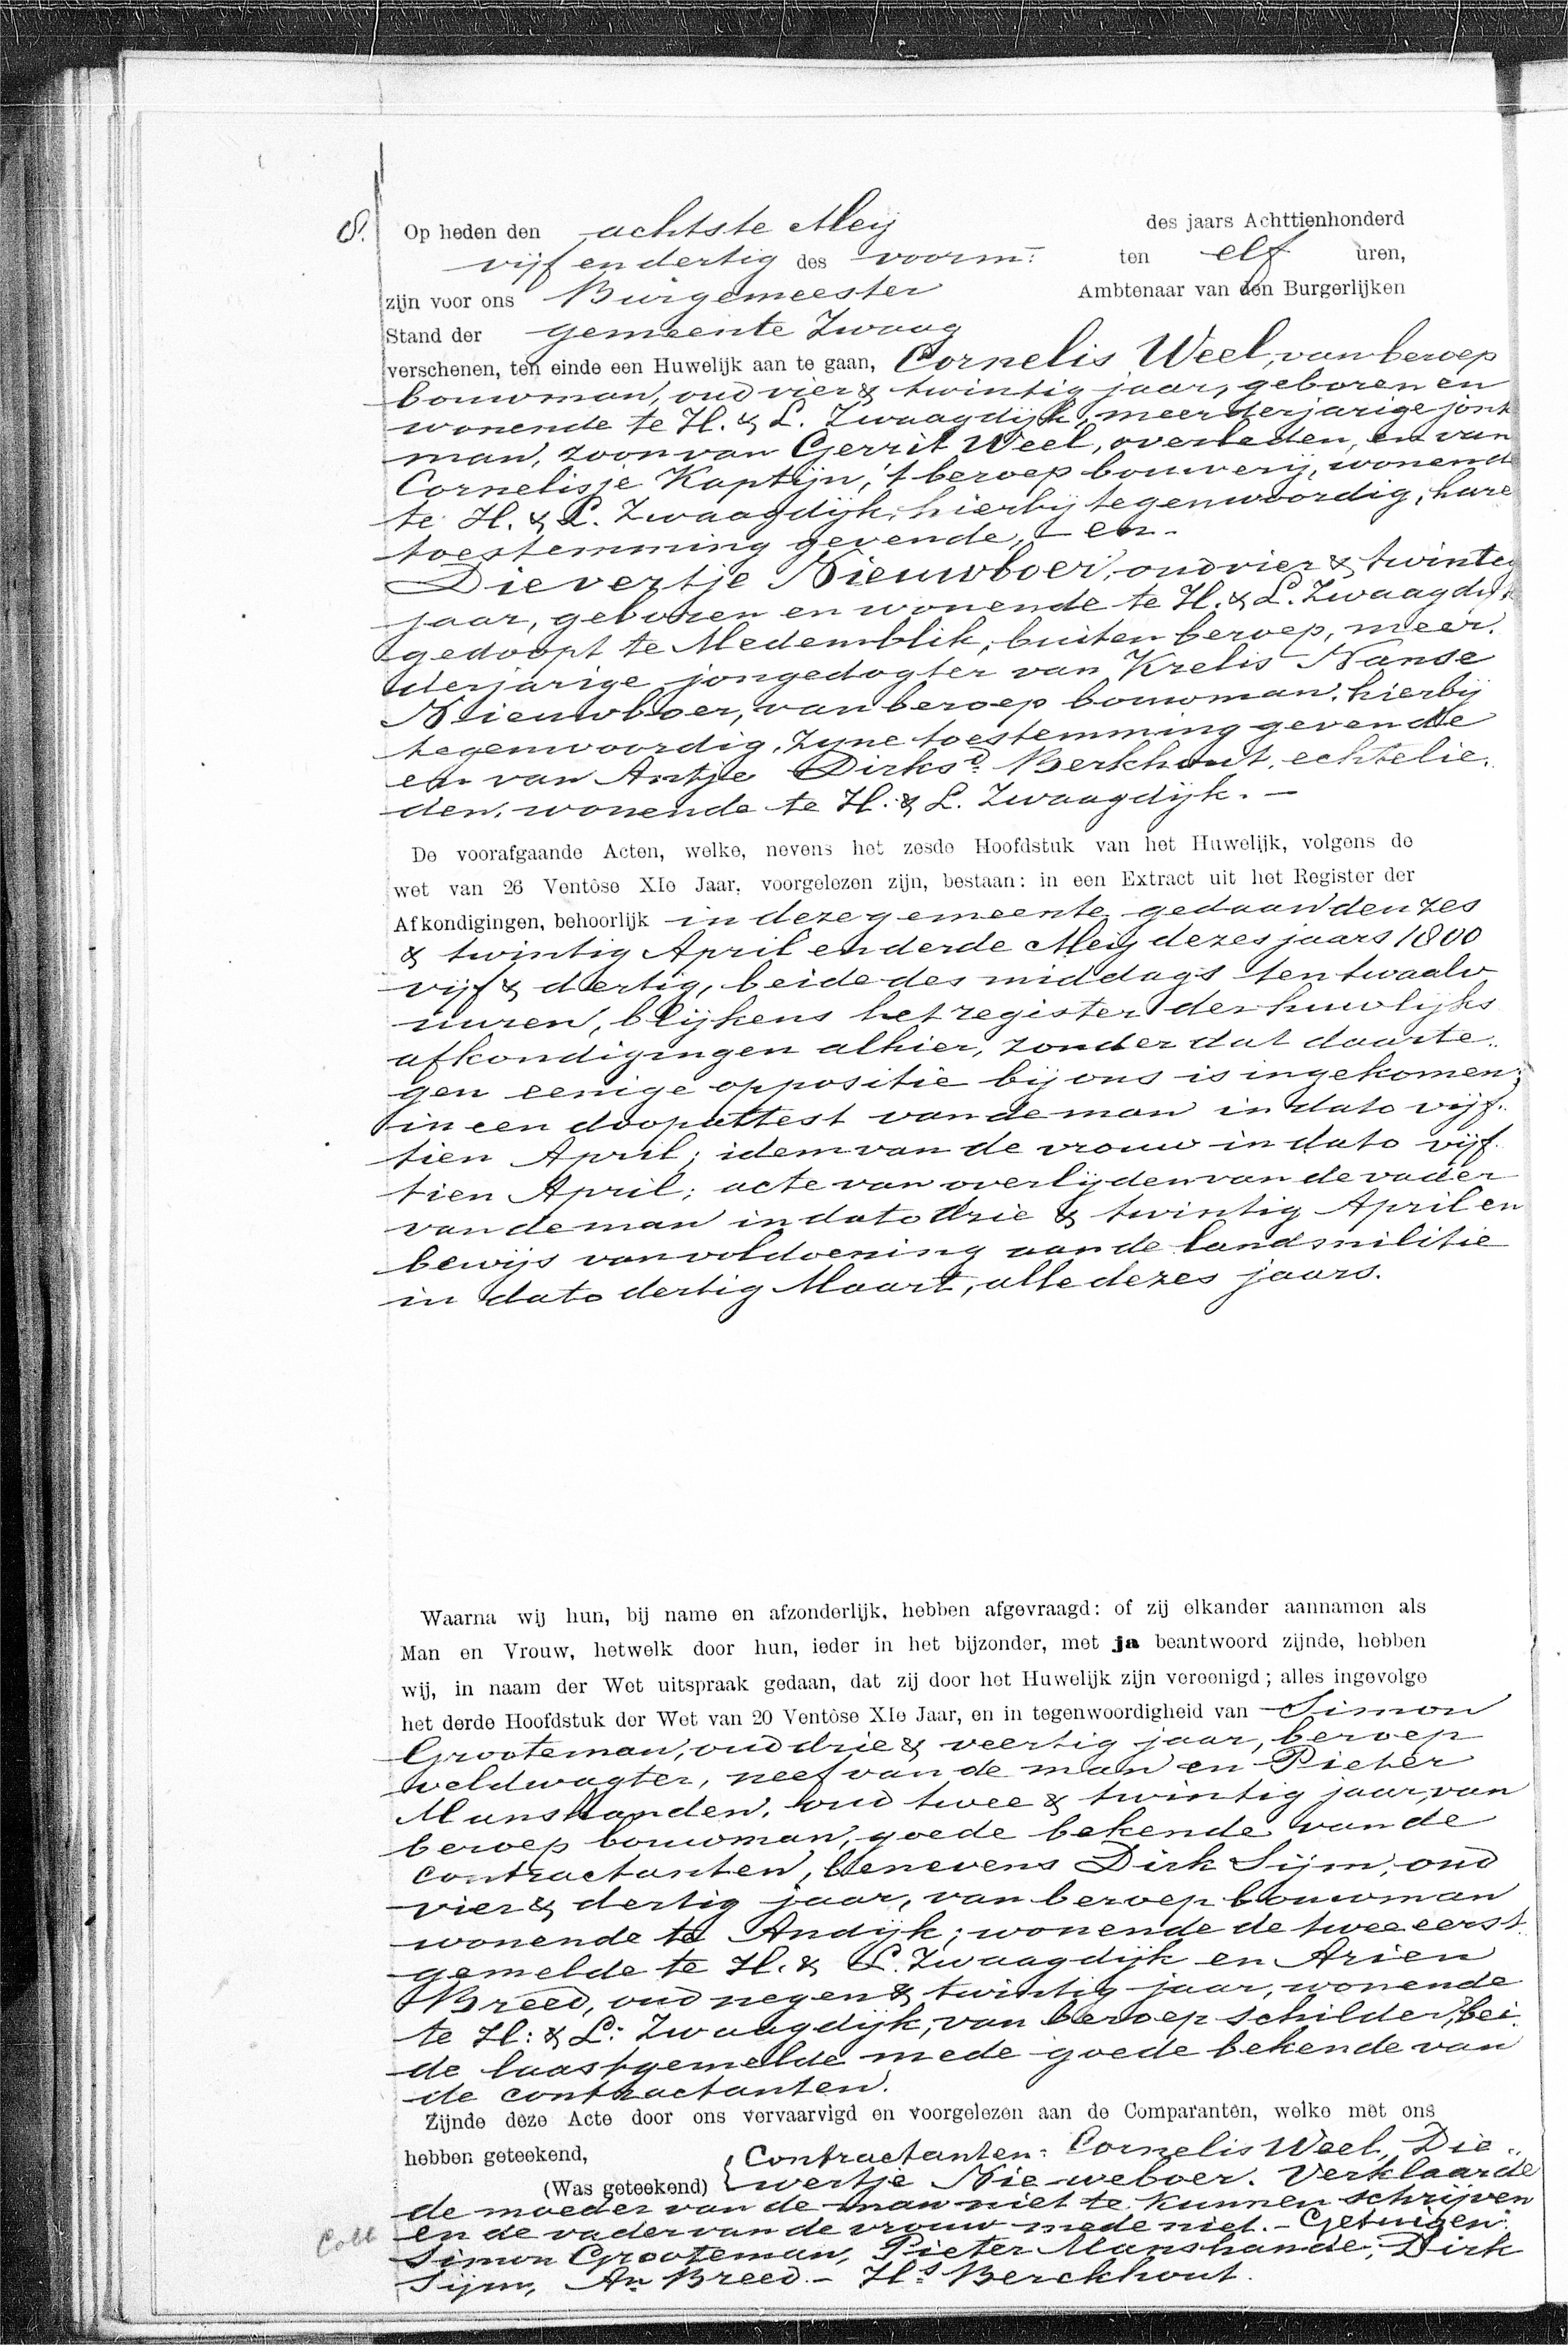 8. Op heden den achtste Meij des jaars Achttienhonderd
vijf en dertig des voorm: ten elf uren,
zijn voor ons Burgemeester Ambtenaar van den Burgerlijken
Stand der gemeente Zwaag
verschenen, ten einde een Huwelijk aan te gaan, Cornelis Weel, van beroep
bouwman, oud vier & twintig jaar, geboren en
wonende te H. & L. Zwaagdijk, meerderjarige jonk
man, zoon van Gerrit Weel, overleden, en van
Cornelisje Kaptijn, 't beroep bouwerij, wonende
te H. & L. Zwaagdijk, hierbij tegenwoordig, hare
toestemming gevende, - en -
Dievertje Nieuwboer, oud vier & twintig
jaar, geboren en wonende te H. & L. Zwaagdijk
gedoopt te Medemblik, buiten beroep, meer.
derjarige jongedogter van Krelis Nanse
Nieuwboer, van beroep bouwman, hierbij
tegenwoordig, zyne toestemming gevende
en van Antje Dirksd. Berkhout, echtelie.
den, wonende te H. & L. Zwaagdijk. -
De voorafgaande Acten, welke, nevens het zesde Hoofdstuk van het Huwelijk, volgens de
wet van 26 Ventôse XIe Jaar, voorgelezen zijn, bestaan: in een Extract uit het Register der
Afkondigingen, behoorlijk in deze gemeente gedaan den zes
& twintig April en derde Meij dezes jaars 1800
vijf & dertig, beide des middags ten twaalv
uuren, blijkens het register der huwlijks
afkondigingen alhier, zonder dat daarte..
gen eenige oppositie bij ons is ingekomen;
in een doopattest van de man in dato vijf..
tien April; idem van de vrouw in dato vijf.
tien April; acte van overlijden van de vader
van de man in dato drie & twintig April en
bewijs van voldoening aan de landsmilitie
in dato dertig Maart, alle dezes jaars.
Waarna wij hun, bij name en afzonderlijk, hebben afgevraagd: of zij elkander aannamen als
Man en Vrouw, hetwelk door hun, ieder in het bijzonder, met ja beantwoord zijnde, hebben
wij, in naam der Wet uitspraak gedaan, dat zij door het Huwelijk zijn vereenigd; alles ingevolge
het derde Hoofdstuk der Wet van 20 Ventôse XIe Jaar, en in tegenwoordigheid van Simon
Grooteman, oud drie & veertig jaar, beroep
veldwagter, neef van de man en Pieter
Manshanden, oud twee & twintig jaar, van
beroep bouwman, goede bekende van de
contractanten, benevens Dirk Sijm, oud
vier & dertig jaar, van beroep bouwman
wonende te Andijk; wonende de twee eerst.
gemelde te H. & L. Zwaagdijk en Arien
Breed, oud negen & twintig jaar, wonende
te H: & L: Zwaagdijk, van beroep schilder, bei.
de laastgemelde mede goede bekende van
de contractanten.
Zijnde deze Acte door ons vervaarvigd en voorgelezen aan de Comparanten, welke met ons
hebben geteekend, Contractanten: Cornelis Weel, Die..
(Was geteekend) wertje Nieweboer. Verklaarde
de moeder van de man niet te kunnen schrijven
Coll en de vader van de vrouw mede niet. - Getuigen:
Simon Grooteman, Pieter Manshande, Dirk
Sijm, An Breed. - Hs. Berckhout.